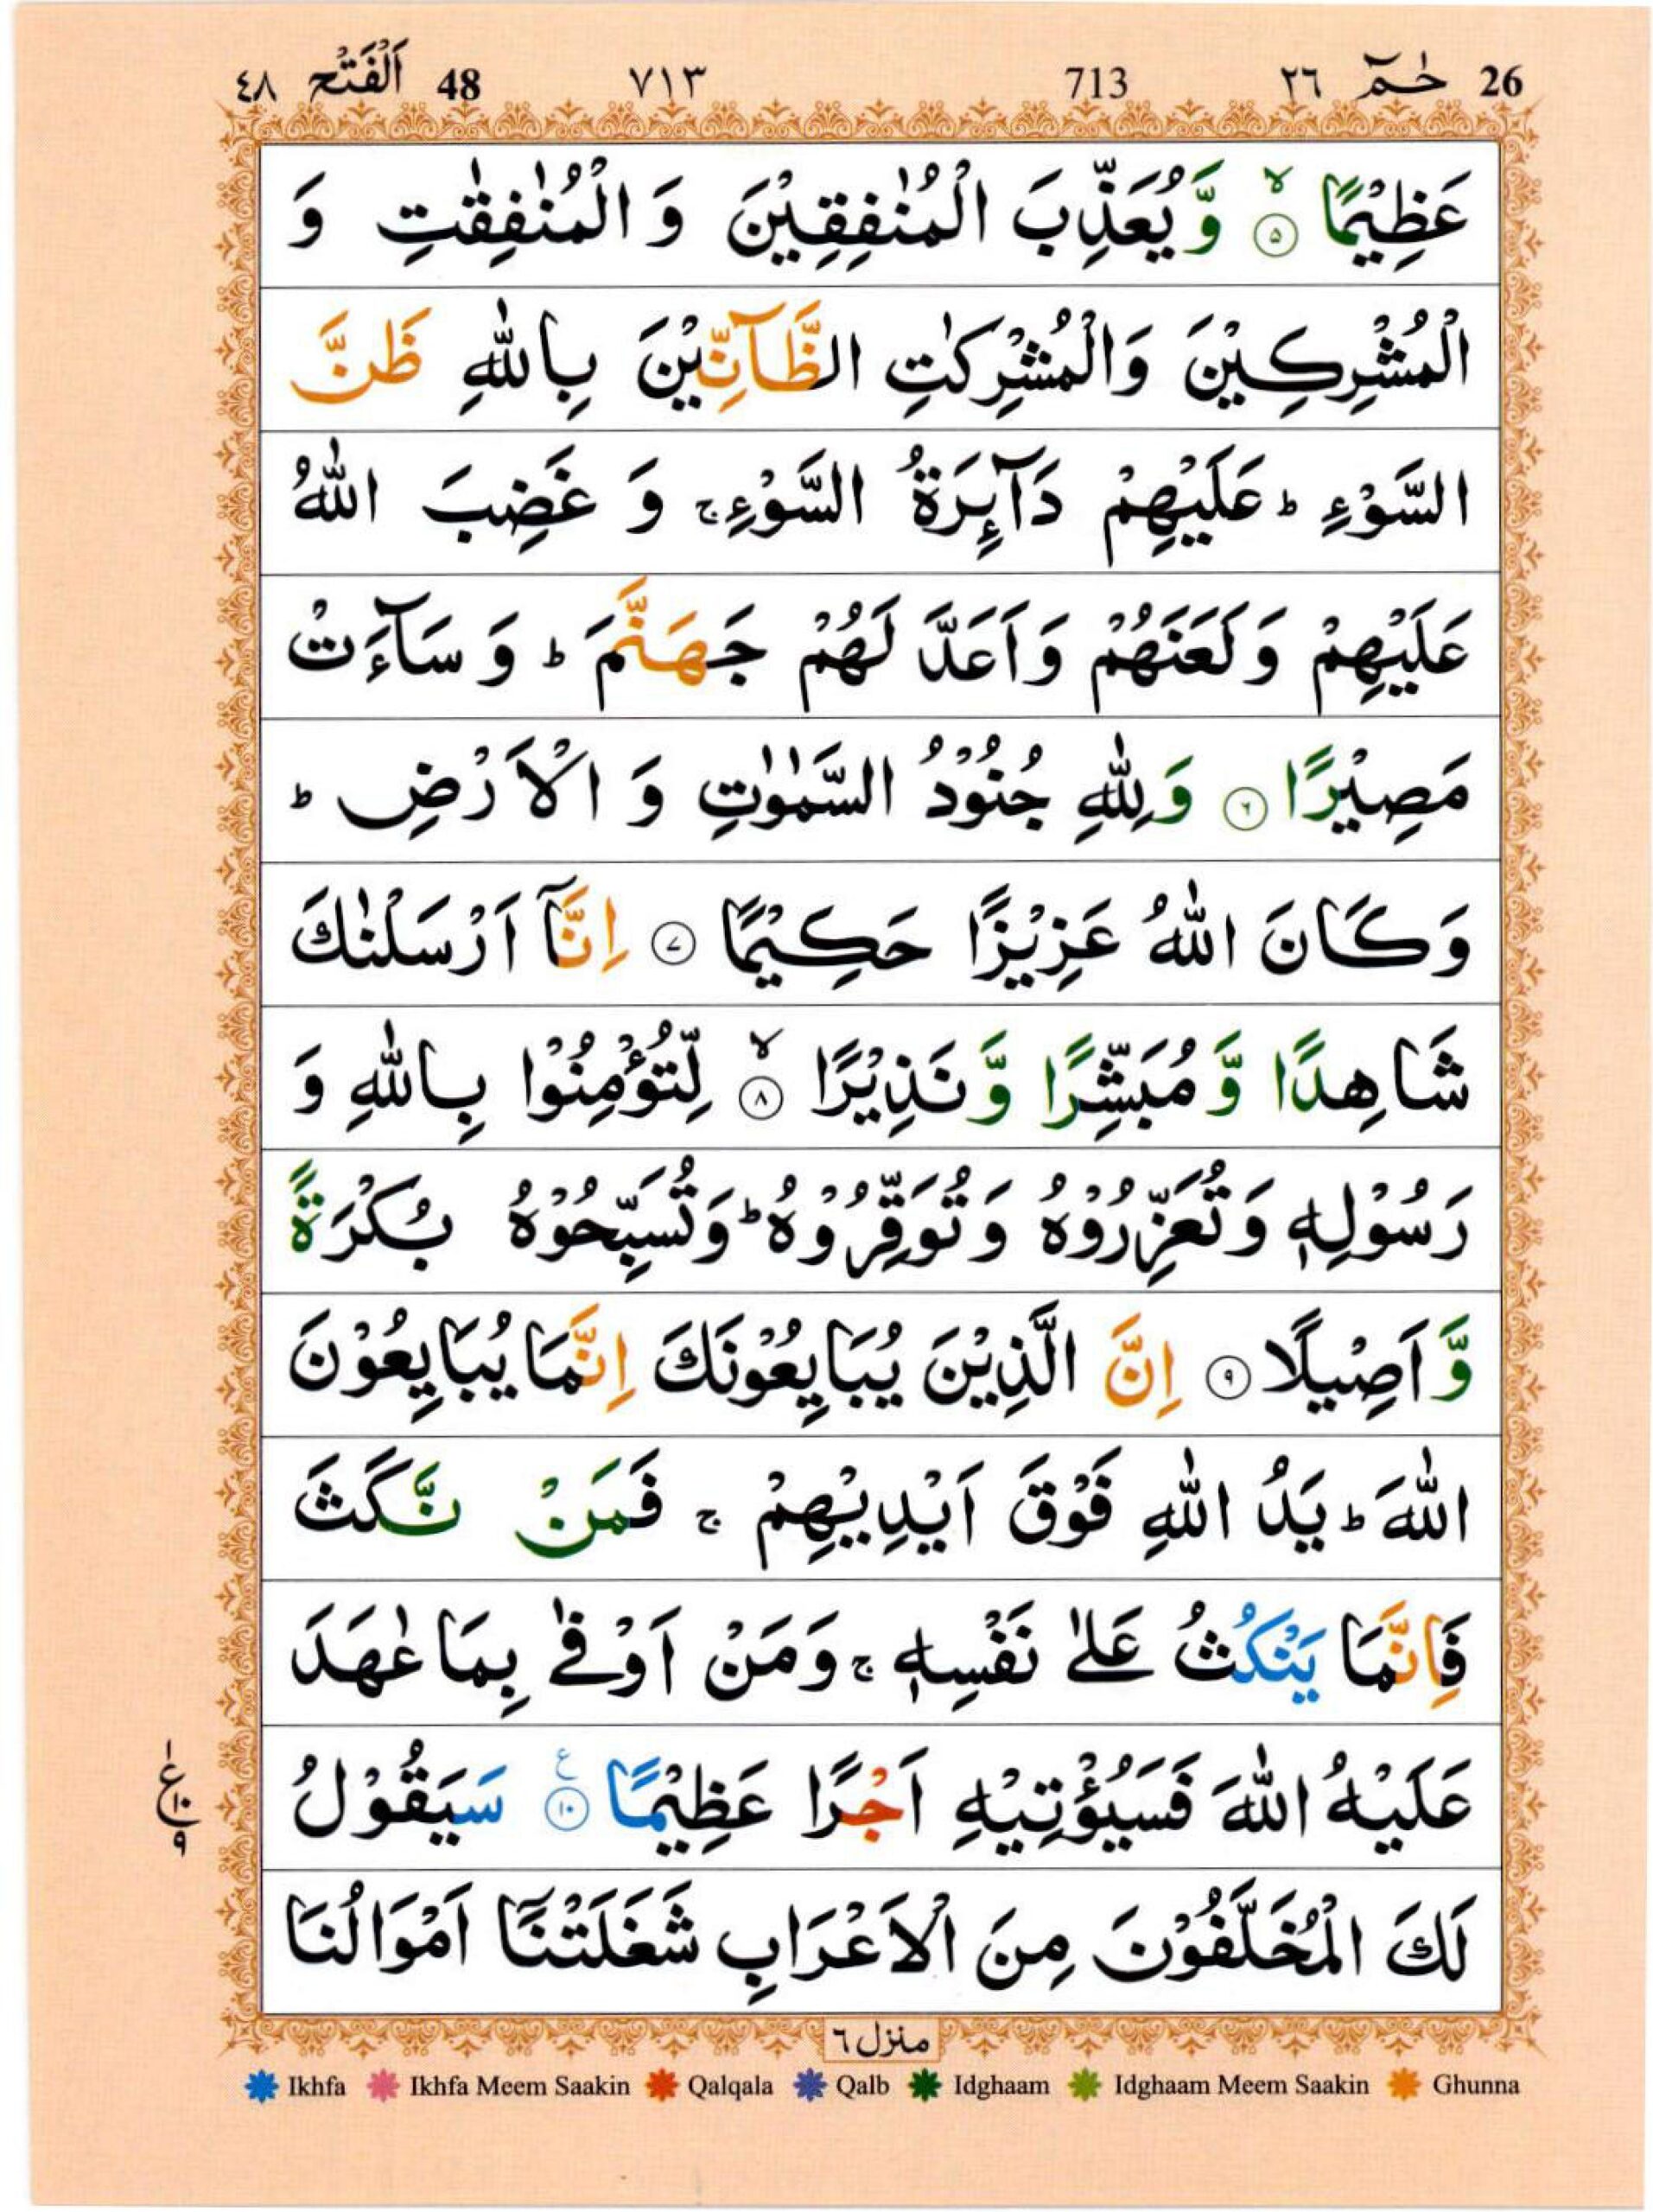 26 حٰمٓ ٢٦ 713 ٧١٣ 48 اَلْفَتْح ٤٨
عَظِيْمًا ۙ‏﴿۵﴾ وَّيُعَذِّبَ الْمُنٰفِقِيْنَ وَ الْمُنٰفِقٰتِ وَ
الْمُشْرِكِيْنَ وَالْمُشْرِكٰتِ الظَّآنِّيْنَ بِاللّٰهِ ظَنَّ
السَّوْءِ ؕ عَلَيْهِمْ دَآئِرَةُ السَّوْءِ ۚ وَ غَضِبَ اللّٰهُ
عَلَيْهِمْ وَلَعَنَهُمْ وَاَعَدَّ لَهُمْ جَهَنَّمَ ؕ وَ سَآءَتْ
مَصِيْرًا ﴿۶﴾ وَلِلّٰهِ جُنُوْدُ السَّمٰوٰتِ وَ الْاَرْضِ ؕ
وَكَانَ اللّٰهُ عَزِيْزًا حَكِيْمًا ﴿۷﴾ اِنَّآ اَرْسَلْنٰكَ
شَاهِدًا وَّ مُبَشِّرًا وَّ نَذِيْرًا ۙ‏﴿۸﴾ لِّتُؤْمِنُوْا بِاللّٰهِ وَ
رَسُوْلِهٖ وَتُعَزِّرُوْهُ وَتُوَقِّرُوْهُ ؕ وَتُسَبِّحُوْهُ بُكْرَةً
وَّاَصِيْلًا ﴿۹﴾ اِنَّ الَّذِيْنَ يُبَايِعُوْنَكَ اِنَّمَا يُبَايِعُوْنَ
اللّٰهَ ؕ يَدُ اللّٰهِ فَوْقَ اَيْدِيْهِمْ ۚ فَمَنْ نَّكَثَ
فَاِنَّمَا يَنْكُثُ عَلٰى نَفْسِهٖ ۚ وَمَنْ اَوْفٰى بِمَا عٰهَدَ
عَلَيْهُ اللّٰهَ فَسَيُؤْتِيْهِ اَجْرًا عَظِيْمًا ﴿۱۰﴾ ع سَيَقُوْلُ
١ ع ١٠ ٩
لَكَ الْمُخَلَّفُوْنَ مِنَ الْاَعْرَابِ شَغَلَتْنَآ اَمْوَالُنَا
منزل ٦
Ikhfa Ikhfa Meem Saakin Qalqala Qalb Idghaam Idghaam Meem Saakin Ghunna